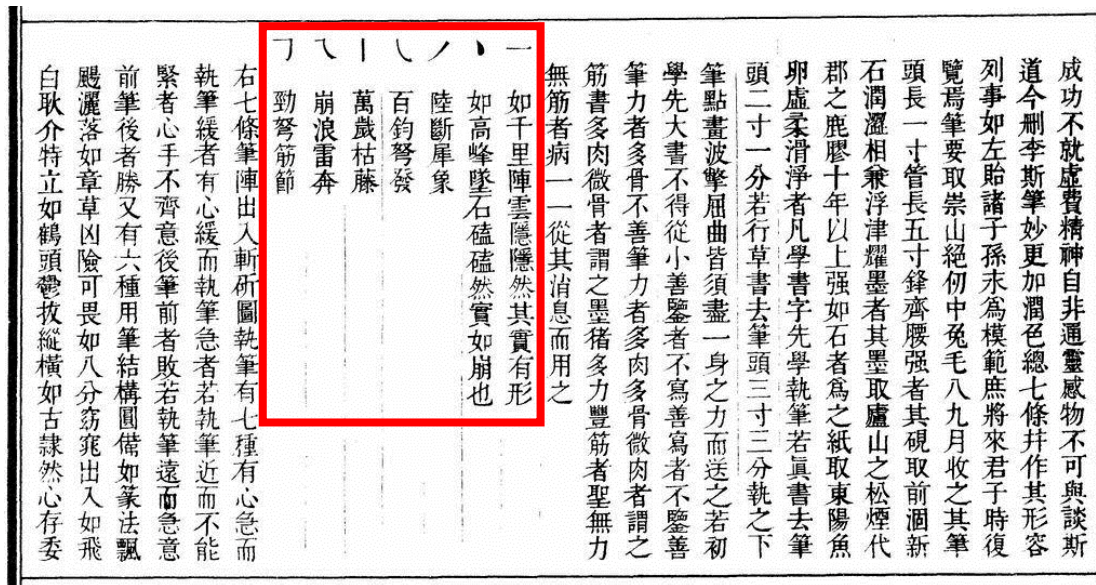 成功不就虛費精神自非通靈感物不可與談斯
道今刪李斯筆妙更加潤色總七條幷作其形容
列事如左貽諸子孫永爲模範庶將來君子時復
覽焉筆要取崇山絕仞中兔毛八九月收之其筆
頭長一寸管長五寸鋒齊腰强者其硯取前涸新
石潤澀相兼浮津耀墨者其墨取廬山之松煙代
郡之鹿膠十年以上强如石者爲之紙取東陽魚
卵虛柔滑淨者凡學書字先學執筆若眞書去筆
頭二寸一分若行草書去筆頭三寸三分執之下
筆點畫波擎屈曲皆須盡一身之力而送之若初
學先大書不得從小善鑒者不寫善寫者不鑒善
筆力者多骨不善筆力者多肉多骨微肉者謂之
筋書多肉微骨者謂之墨猪多力豐筋者聖無力
無筋者病一一從其消息而用之
一 如千里陣雲隱隱然其實有形
丶 如高峰墜石磕磕然實如崩也
丿 陸斷犀象
㇃ 百鈞弩發
丨 萬歲枯藤
㇏ 崩浪雷奔
㇆ 勁弩筋節
右七條筆陣出入斬斫圖執筆有七種有心急而
執筆緩者有心緩而執筆急者若執筆近而不能
緊者心手不齊意後筆前者敗若執筆遠而急意
前筆後者勝又有六種用筆結構圓備如篆法飄
颺灑落如章草凶險可畏如八分窈窕出入如飛
白耿介特立如鶴頭鬱拔縱橫如古隸然心存委